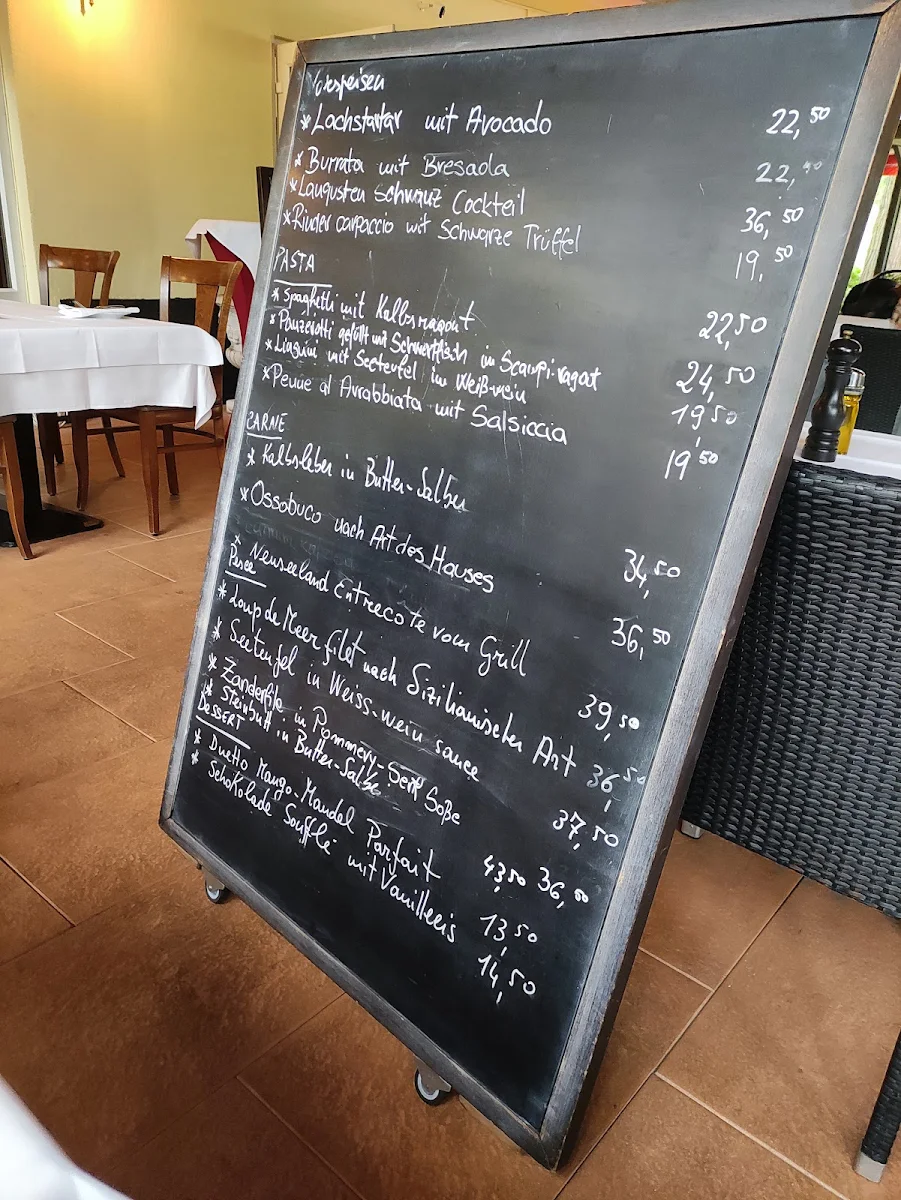 Vorspeisen
*Lachstartar mit Avocado 22,50
*Burrata mit Bresaola 22,50
*Langusten Schwanz Cocktail 36,50
*Rinder carpaccio mit Schwarze Trüffel 19,50
PASTA
*Spaghetti mit Kalbsragout 22,50
*Panzerotti gefüllt mit Schwertfisch in Scampi-ragat 24,50
*Linguini mit Seeteufel in Weiß-wein 19,50
*Penne al Arrabbiata mit Salsiccia 19,50
CARNE
*Kalbsleber in Butter-Salbei 34,50
*Ossobuco nach Art des Hauses 36,50
*Neuseeland Entrecote vom Grill 39,50
Pesce
*Loup de Meer filet nach Sizilianischer Art 36,50
*Seeteufel in Weiss-wein sauce 37,50
*Zanderfile in Pommery-Senf Soße 36,50
*Steinbutt in Butter-Salbe 43,50
DESSERT
*Duetto Mango-Mandel Parfait 13,50
*Schokolade Soufflé mit Vanilleeis 14,50